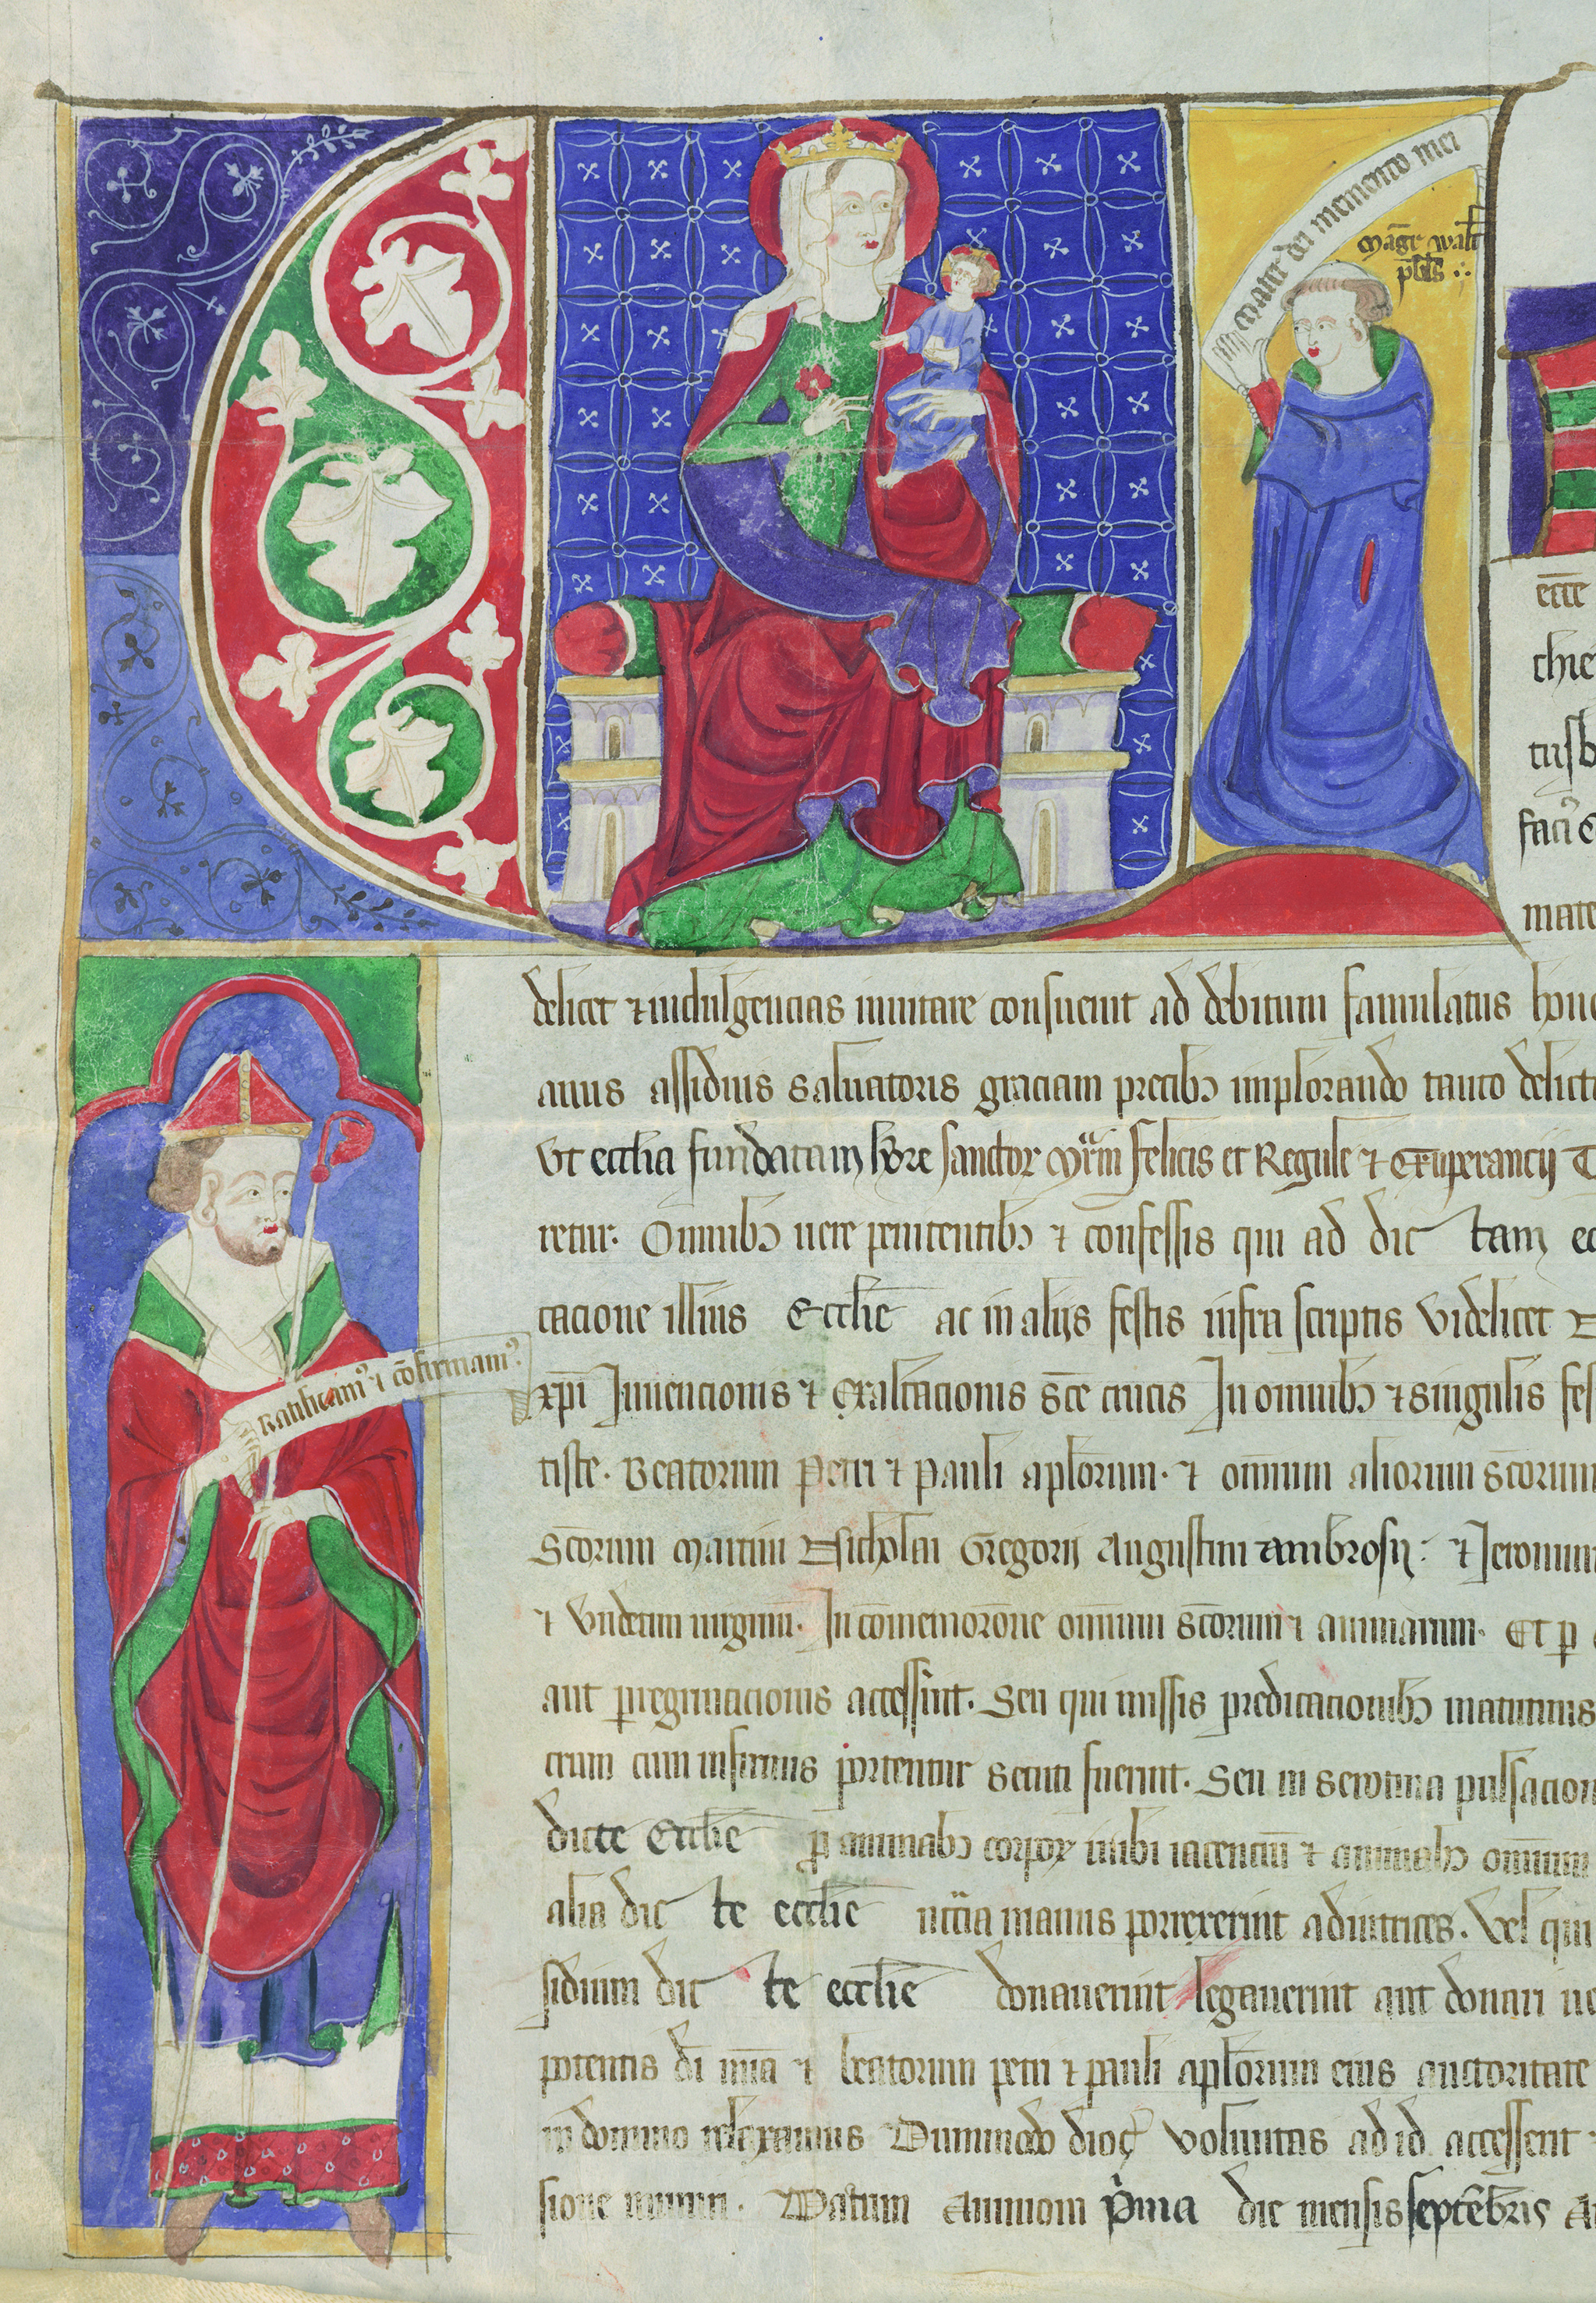 mater dei memento mei
māgr walt
pbr̄s
ecce
chie
tusb
faci
mate
delicet ⁊ indulgencias inuitare consueuit ad debitum famulatus hono
anus assiduis saluatoris graciam precibꝫ implorando tanto delict
Vt eccl̄ia fundatam hōre sanctor mr̄m felicis et Regule ⁊ Exuperancij
retur. Omnibꝫ uere penitentibꝫ ⁊ confessis qui ad dic tam ec
cacione illius Eccl̄ie ac in alijs festis infra scriptis Videlicet
xp̄i Inuencionis ⁊ Exaltacionis sc̄e crucis In omnibꝫ ⁊ singulis fes
ratificamꝰ ⁊ cōfirmamꝰ
tiste. Beatorum Petri ⁊ Pauli apl̄orum. ⁊ om̄ium aliorum sc̄orum
Sc̄orum Martini Nicholai Gregorij Augustini ambrosij: ⁊ Jeronim
⁊ Vndecim uirginū. In cōmemorōne omnium sc̄orum ⁊ animarum. Et ꝑ
aut ꝑegrinacionis accessint. Seu qui missis predicacionibꝫ matutinis
crum cum infirmis portentur secuti fuerint. Seu in serotina pulsacion
dicte Eccl̄ie ꝑ animabꝫ corpoꝝ inibi iacenciū ⁊ animabꝫ omnium
alia dic te eccl̄ie nc̄cia manus porrexerint adiutrices. Vel qui
sidium dic te eccl̄ie donauerint legauerint aut donari
potentis dī mīa ⁊ beatorum petri ⁊ pauli apl̄orum eius auctoritate
in domino relaxamus Dummodo dioc̄ voluntas ad id accesserit
sione muniri. Datum Auinion p̄ma die mensis septēbris